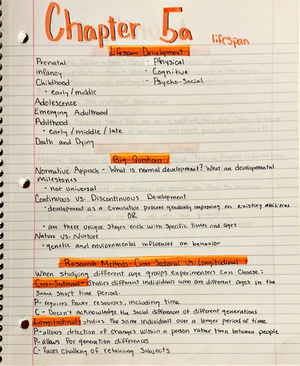 Chapter 5a
lifespan
Lifespan Development
Prenatal · Physical
Infancy · Cognitive
Childhood · Psycho-Social
· early/middle
Adolescence
Emerging Adulthood
Adulthood
· early/middle/late
Death and Dying
Big Questions
Normative Approach - What is normal development? What are developmental
milestones
· not universal
Continuous vs. Discontinuous Development
· development as a cumulative process gradually improving on existing abilities
OR
· are there unique stages each with specific times and ages
Nature vs. Nurture
· genetic and environmental influences on behavior
Research Methods: Cross-Sectional vs. Longitudinal
When studying different age groups experimenters can choose:
Cross-Sectional - studies different individuals who are different ages in the
same short time period.
P- requires fewer resources, including time
C- Doesn't acknowledge the social differences of different generations
Longitudinal: studies the same individuals over a longer period of time.
P- allows detection of changes within a person rather than between people
P- allows for generation differences
C- faces challenge of retaining subjects